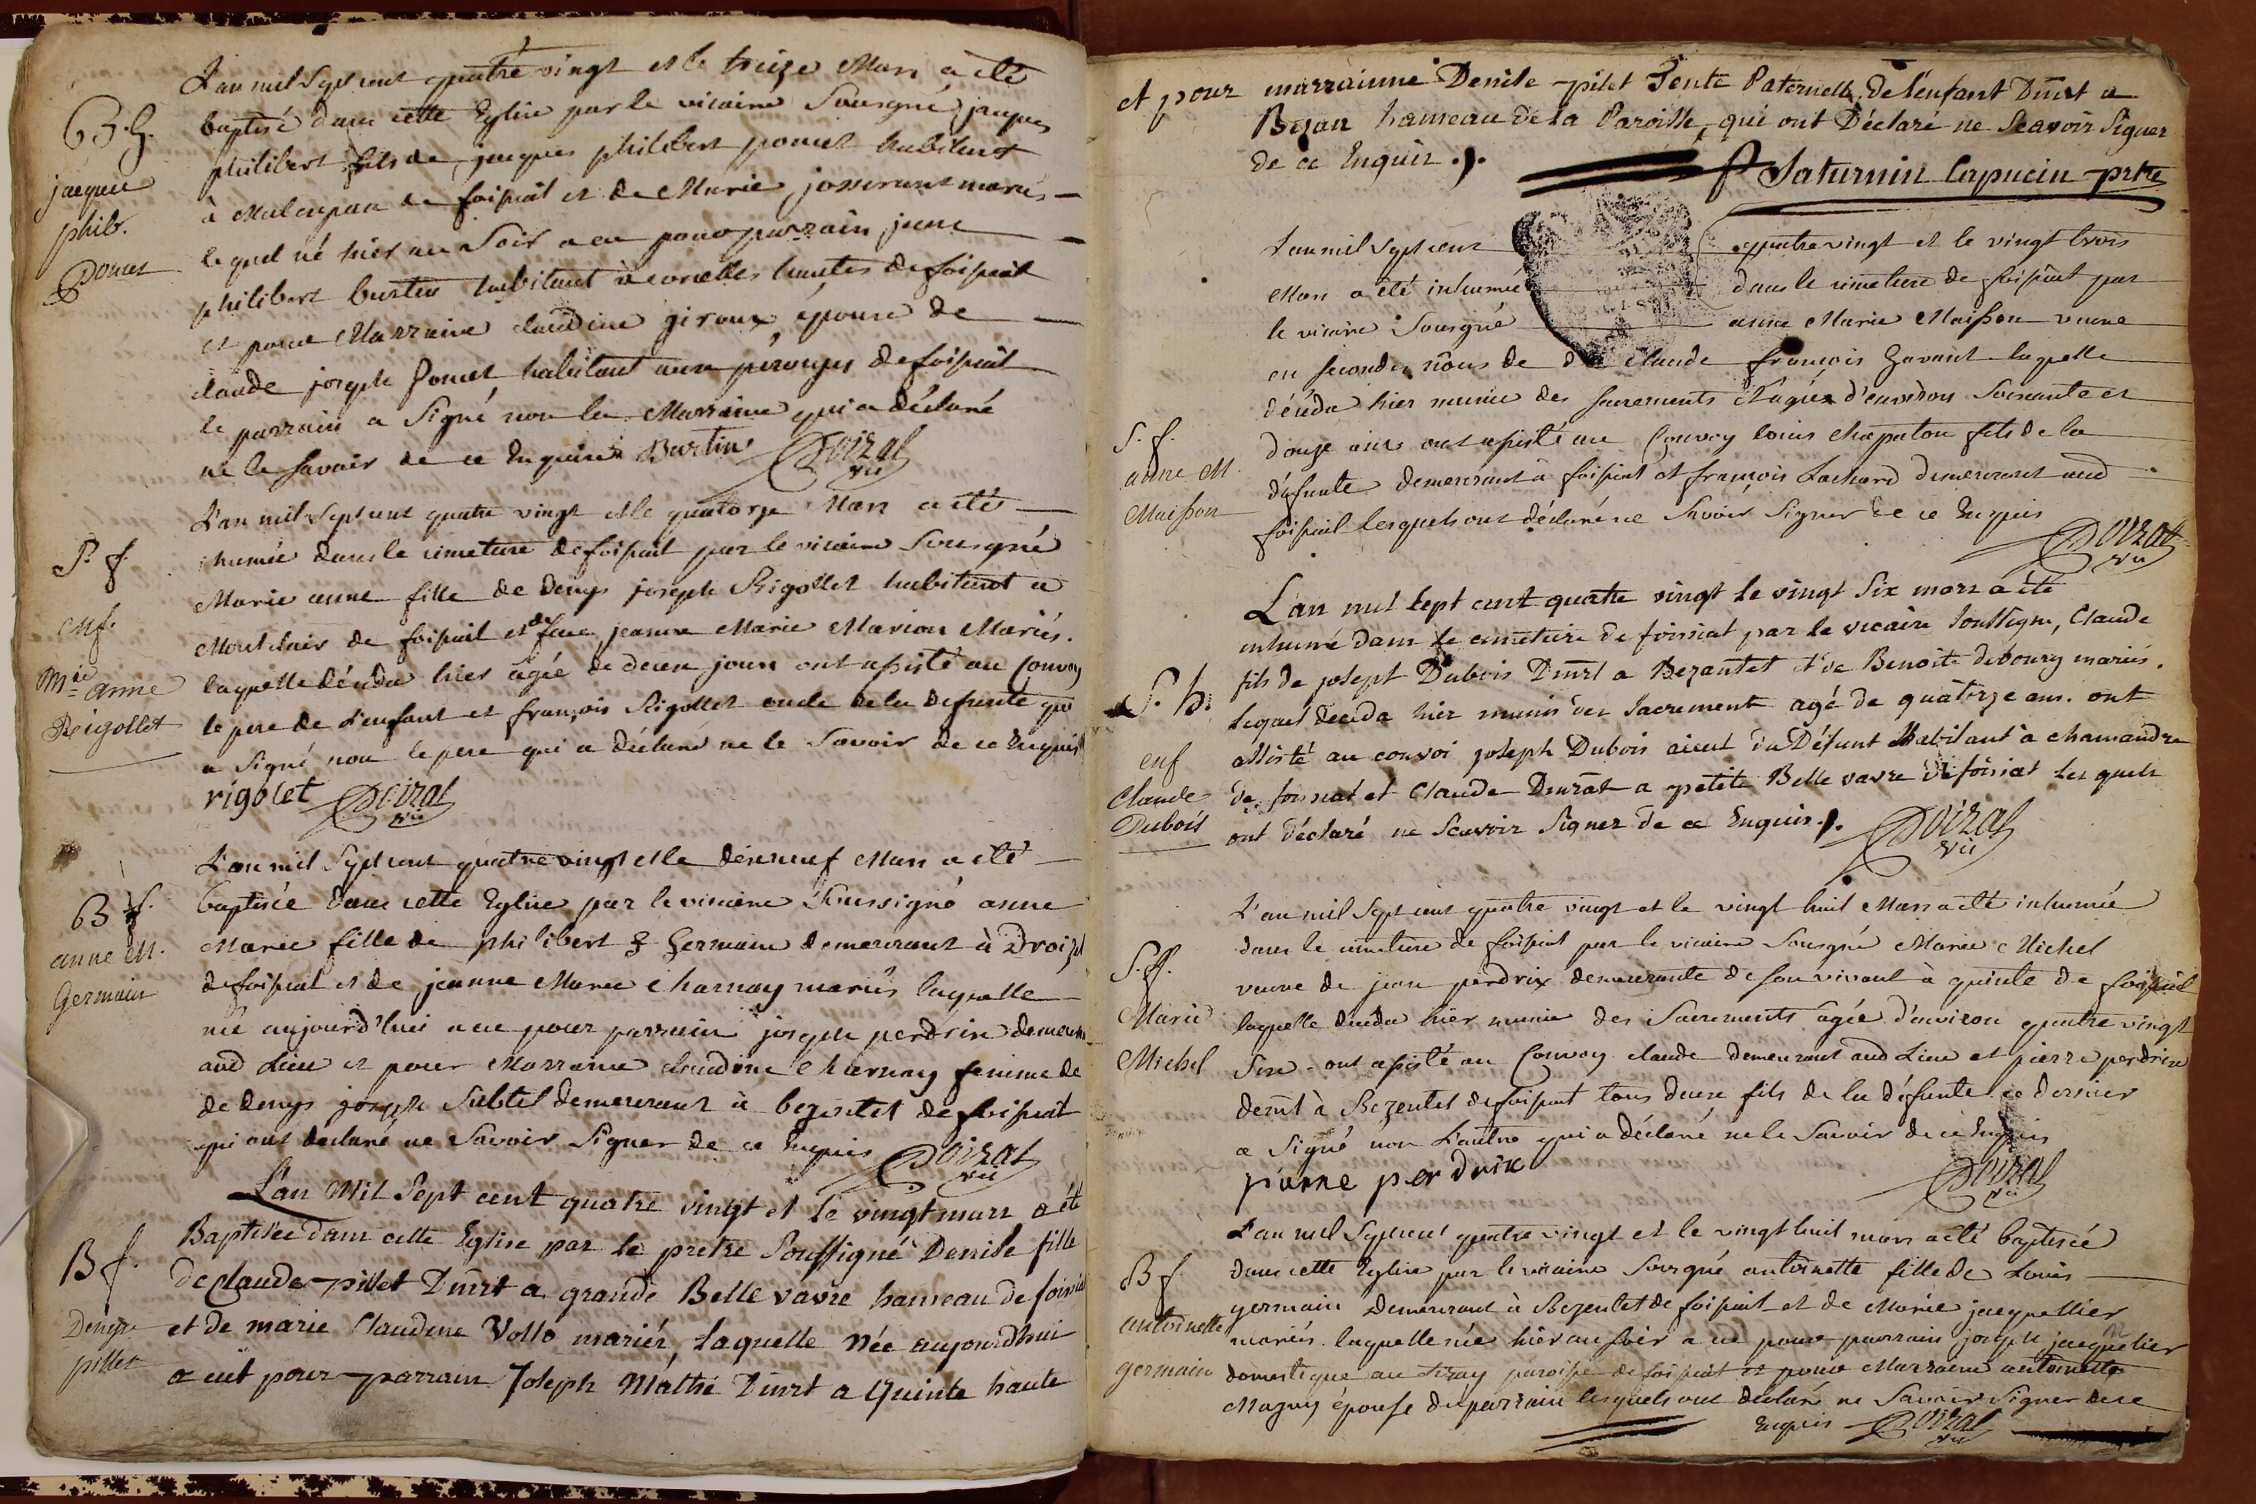 B.h.
jacque
phib.
Poncet
L'an mil Sept cent quatre vingt et le treize Mars a été
baptisé dans cette Eglise par le vicaire Sousigné jacques
philibert fils de jacques philibert poncet habitant
à de foissiat et de Marie josserant mariés
le quel né hier au Soir a eu pour parrain jean
philibert burtin habitant à cornelles hautes de foissiat
et pour Marraine claudine giroux épouse de
claude joseph Poncet habitant aux pérouzes de foissiat
le parrain a Signé non la Marraine qui a déclaré
ne le savoir de ce Enquise Burtin Doizat
vic
S. f.
enf.
Mrie anne
Rigollet
L'an mil Sept cent quatre vingt et le quatorze Mars a été
inhumée dans le cimetiere de foissiat par le vicaire Sousigné
Marie anne fille de Denys joseph Rigollet habitant a
Montclair de foissiat et de jeanne Marie Marion Mariés.
laquelle décéda hier agée de deux jours ont assisté au Convoy
le pere de l'enfant et françois Rigollet oncle de la defunte qui
a Signé non le pere qui a déclaré ne le Savoir de ce Enquis
rigolet Doizat
vic
B f.
anne M.
Germain
L'an mil Sept cent quatre vingt et le dixneuf Mars a été
baptisée dans cette Eglise par le vicaire Soussigné anne
Marie fille de philibert Germain demeurant à Droizat
de foissiat et de jeanne Marie Charnay mariés laquelle
née aujourd'hui a eu pour parrain joseph perdrix demeurant
aud Lieu et pour Marraine claudine Charnay femme de
de denys joseph Subtil demeurant à bezentet de foissiat
qui ont déclaré ne Savoir Signer de ce Enquis Doizat
vic
B f.
Denyse
pillet
L'an Mil Sept cent quatre vingt et le vingt mars a été
Baptisée dans cette Eglise par le prêtre Soussigné Denise fille
de Claude pilet Dmrt a grande Belle vavre hameau de foissiat
et de marie Claudine Vollo mariés, laquelle Née aujourdhui
a eüt pour parrain Joseph Mathé Dmrt a Quinte haute
et pour marrainne Denise pilet Tente Paternelle de l'enfant Dmrt a
Bezan hameau de la Paroisse, qui ont Déclaré ne Scavoir Signer
de ce Enquis.
f Saturnin Capucin prtre
S. f.
anne M.
Maisson
L'an mil Sept cent quatre vingt et le vingt trois
Mars a été inhumée dans le cimetiere de foissiat par
le vicaire Sousigné anne Marie Maisson veuve
en secondes nôces de Claude françois gavant laquelle
décéda hier munie des sacrements et agée d'environ Soixante et
douze ans ont assisté au Convoy louis chapaton fils de la
défunte demeurant à foissiat et françois Lachard demeurant aud
foissiat lesquels ont déclaré ne Savoir Signer de ce Enquis
Doizat
vic
S. h.
enf
Claude
Dubois
L'an mil sept cent quatre vingt le vingt Six mars a été
inhumé dans le cimetiere de foissiat par le vicaire Soussigne, Claude
fils de joseph Dubois Dmrt a Bezantet et de Benoite debourg mariés.
lequel deceda hier munis des Sacrement agé de quatorze ans. ont
assisté au convoi joseph Dubois aieul du Défunt Habitant à chamandre
de foissiat et Claude Dmrat a petite Belle vavre de foissiat Les quels
ont déclaré ne Scavoir Signer de ce Enquis. Doizat
vic
S. f.
Marie
Michel
L'an mil Sept cent quatre vingt et le vingt huit Mars a été inhumée
dans le cimetiere de foissiat par le vicaire Sousigné Marie Michel
veuve de jean perdrix demeurante de son vivant à quinte de foissiat
laquelle deceda hier munie des Sacrements agée d'environ quatre vingt
Six ont assisté au Convoy claude demeurant aud Lieu et pierre perdrix
demt à Bezentet de foissiat tous deux fils de la défunte ce dernier
a Signé non l'autre qui a déclaré ne le Savoir de ce Enquis
piarre perdrix Doizat
vic
B f.
antoinette
germain
L'an mil Sept cent quatre vingt et le vingt huit mars a été baptisée
dans cette Eglise par le vicaire Sousigné antoinette fille de Louis
germain demeurant à Bezentet de foissiat et de Marie jacquellier
mariés laquelle née hier au soir a eu pour parrain joseph jacquelier
domestique au tiray paroisse de foissiat et pour Marraine antoinette
Magny épouse du parrain lesquels ont déclaré ne Savoir Signer de ce
Enquis Doizat
vic